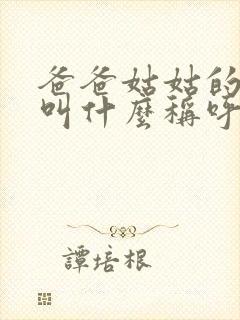 爸爸姑姑的
叫什麼稱呼
譚培根